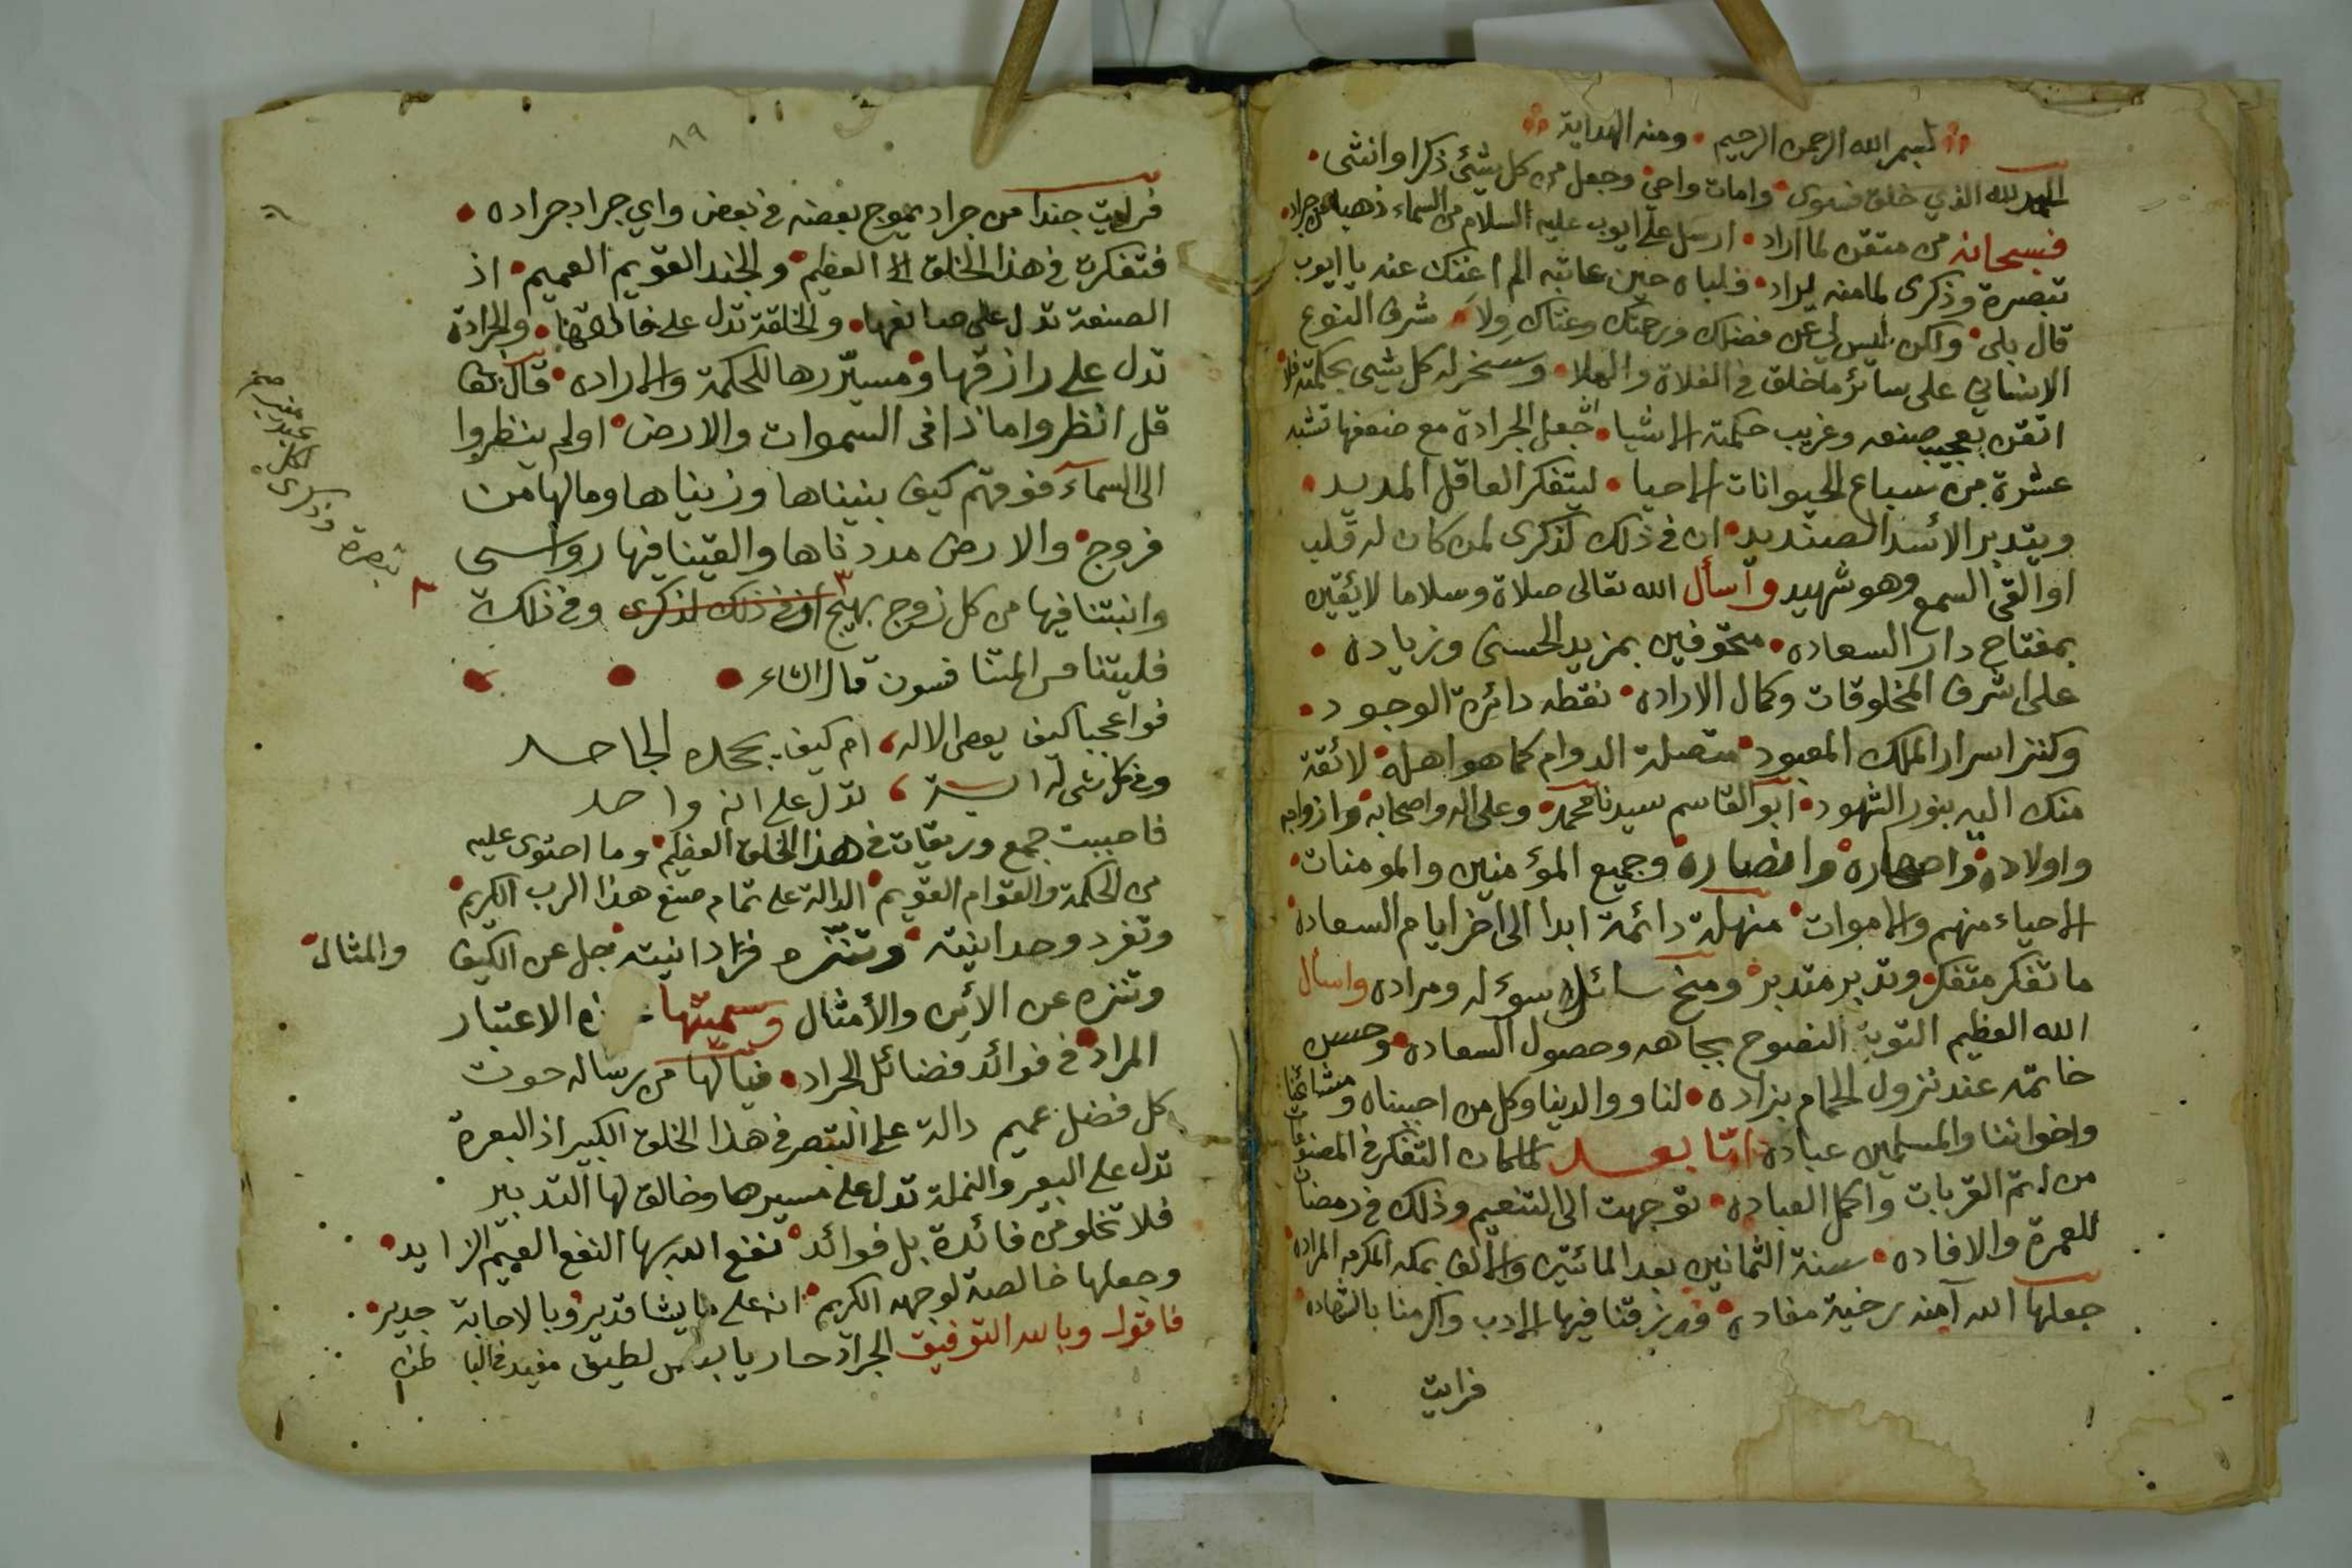 بسم الله الرحمن الرحيم • ومنه الهداية
الحمد لله الذي خلق فسوى • وامات واحيى • وجعل من كل شيئ ذكرا وانثى •
فسبحانه من متقن لما اراد • ارسل على ايوب عليه السلام من السماء ذهبا جراد •
تبصرة وذكرى لما منه يراد • فلباه حين عاتبه الم اغنك عنه يا ايوب
قال بلى • ولكن ليس لي عن فضلك ورحمتك وغناك ولا • شرف النوع
الانساني على سائر ما خلق في الفلاة والملا • وسخر له كل شيى بحكمته فلا
اتقن بعجيب صنعه وغريب حكمته الاشيا • فجعل الجرادة مع ضعفها تشبه
عشرة من سباع الحيوانات الاحيا • ليتفكر العاقل المديد •
ويتدبر الأسد الصنديد • ان في ذلك لذكرى لمن كان له قلب
او القى السمع وهو شهيد وأسأل الله تعالى صلاة وسلاما لائقين
بمفتاح دار السعاده • محفوفين بمزيد الحسنى وزياده •
على اشرف المخلوقات وكمال الاراده • نقطه دائرة الوجود •
وكنز اسرار الملك المعبود • متصلة الدوام كما هو اهله • لائقة
منك اليه بنور الشهود • ابو القاسم سيدنا محمد • وعلى اله واصحابه وازواجه
واولاده واصهاره وانصاره وجميع المؤمنين والمومنات •
الاحياء منهم والاموات • منهلة دائمة ابدا الى اخر ايام السعاده
ما تفكر متفكر • وتدبر متدبر • ومنح سائل سوءله ومراده واسال
الله العظيم التوبة النصوح بجاهه وحصول السعاده • وحسن
خاتمه عند نزول الحمام بزاده • لنا ووالدينا وكل من احبيناه ومشائخنا
واخواننا والمسلمين عباده اما بعد لما كان التفكر في المصنوعات
من اتم القربات واكمل العباده • توجهت الى التنعيم وذلك في رمضان
للعمرة والافاده • سنة الثمانين بعد المائتين والالف بمكه المكرمه المراده
جعلها الله آمنه رخية مفاده • ورزقنا فيها الادب واكرمنا بالشهاده
فرايت
٨٩
فرايت جندا من جراد يموج بعضه في بعض واي جراد جراده •
فتفكرت في هذا الخلق العظيم • والجند القويم العميم • اذ
الصنعة تدل على صانعها • والخلقة تدل على خالقها • والجرادة
تدل على رازقها • ومسيّرها للحكمة والاراده • قال تعا
قل انظروا ماذا في السموات والارض • اولم ينظروا
الى السماء فوقهم كيف بنيناها وزيناها ومالها من
فروج • والارض مددناها والقينا فيها رواسى
وانبتنا فيها من كل زوج بهيج ان في ذلك لذكرى وفي ذلك
تبصرة وذكرى لكل عبد منيب صح
فليتنافس المتنافسون قال الشاعر
فواعجبا كيف يعصى الاله ، ام كيف يجحده الجاحد
وفي كل شى له اية ، تدل على انه واحد
فاحببت جمع وريقات في هذا الخلق العظيم • وما احتوى عليه
من الحكمة والقوام القويم • الدالة على تمام صنع هذا الرب الكريم •
وتفرد وحدانيته • وتنزه فردانيته • جل عن الكيف والمثال •
وتنزه عن الأين والأمثال وسميتها ه الاعتبار
المراد • في فوائد فضائل الجراد • فيالها من رساله حوت
كل فضل عميم دالة على التبصر في هذا الخلق الكبير اذ البعرة
تدل على البعير والنملة تدل على مسيرها وخالق لها التدبير
فلا تخلو من فائدة بل فوائد • نفع الله بها النفع العميم الزايد •
وجعلها خالصة لوجهه الكريم • انه على ما يشا قدير • وبالاجابة جدير •
فاقول وبالله التوفيق الجراد حار يابس لطيف مفيد